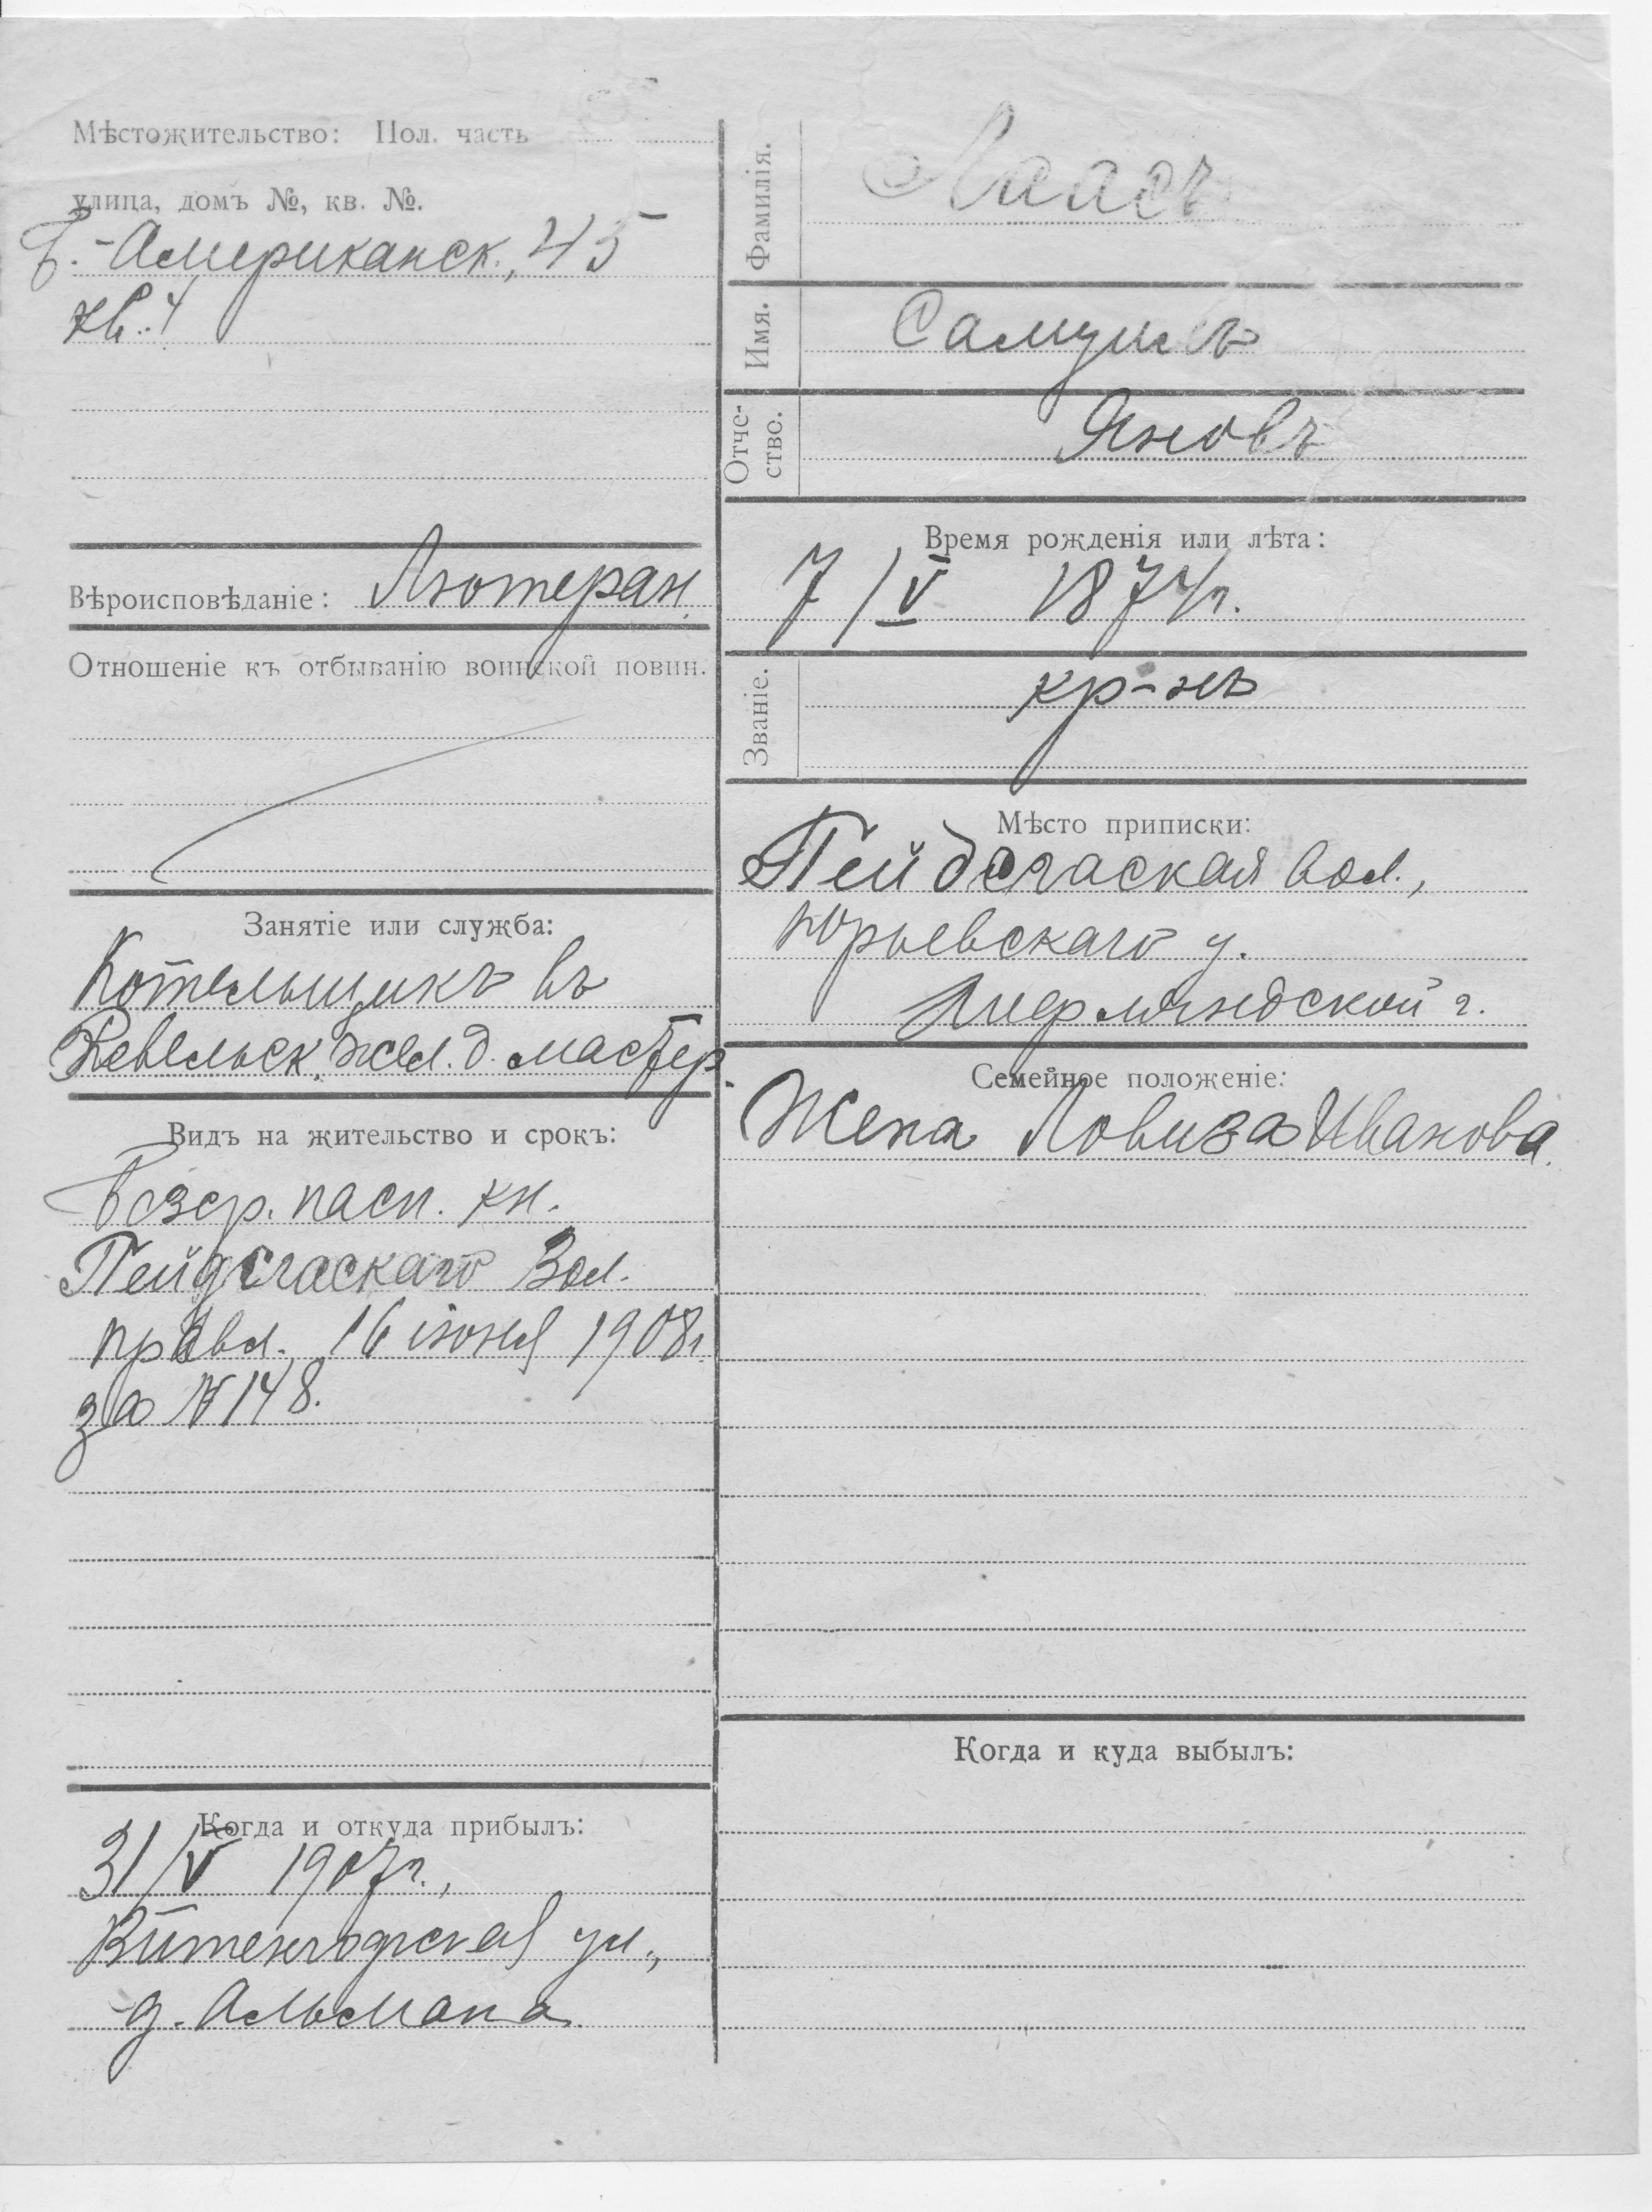 Мѣстожительство: Пол. часть
улица, домъ №, кв. №.
Б.-Американск., 45
кв. 4
Вѣроисповѣданіе: Лютеран.
Отношеніе къ отбыванію воинской повин.
Занятіе или служба:
Котельщикъ въ
Ревельск. жел. д. мастер.
Видъ на жительство и срокъ:
Безср. пасп. кн.
Вол.
правл. 16 іюня 1908г.
за № 148.
Когда и откуда прибылъ:
31/V 1907г.,
ул.,
д. Альмана
Фамилія. Лаасъ
Имя. Самуилъ
Отче-
ство. Яновъ
Время рожденія или лѣта:
7/V 1874г.
Званіе. кр-нъ
Мѣсто приписки:
вол.,
Юрьевскаго у.
Лифляндской г.
Семейное положеніе:
Жена Ловиза Иванова.
Когда и куда выбылъ: